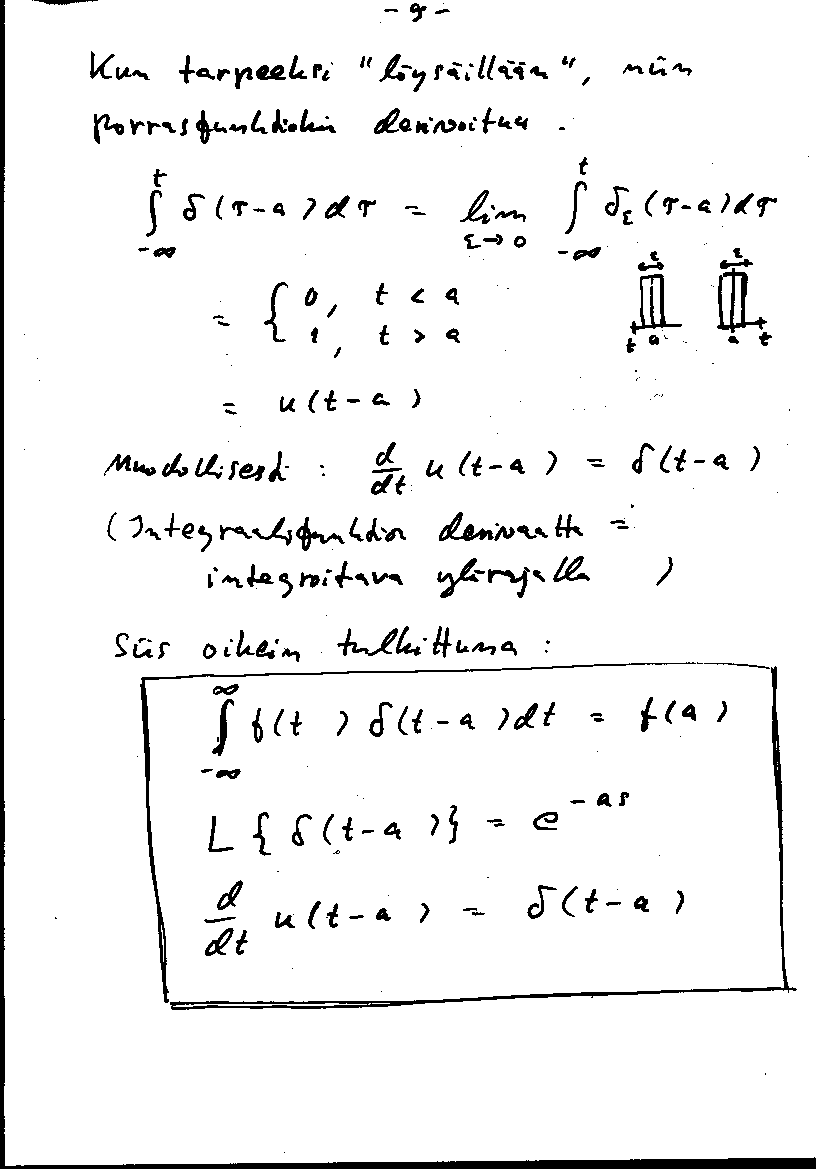 - 9 -
Kun tarpeeksi "löysäillään", niin
porrasfunktiokin derivoituu.
∫_{-∞}^{t} δ(τ-a)dτ = lim_{ε→0} ∫_{-∞}^{t} δ_ε(τ-a)dτ
= { 0, t < a
1, t > a
ε ε
t a a t
= u(t-a)
Muodollisesti : d/dt u(t-a) = δ(t-a)
(Integraalifunktion derivaatta =
integroitava ylärajalla )
Siis oikein tulkittuna :
∫_{-∞}^{∞} f(t) δ(t-a)dt = f(a)
L{δ(t-a)} = e^{-as}
d/dt u(t-a) = δ(t-a)